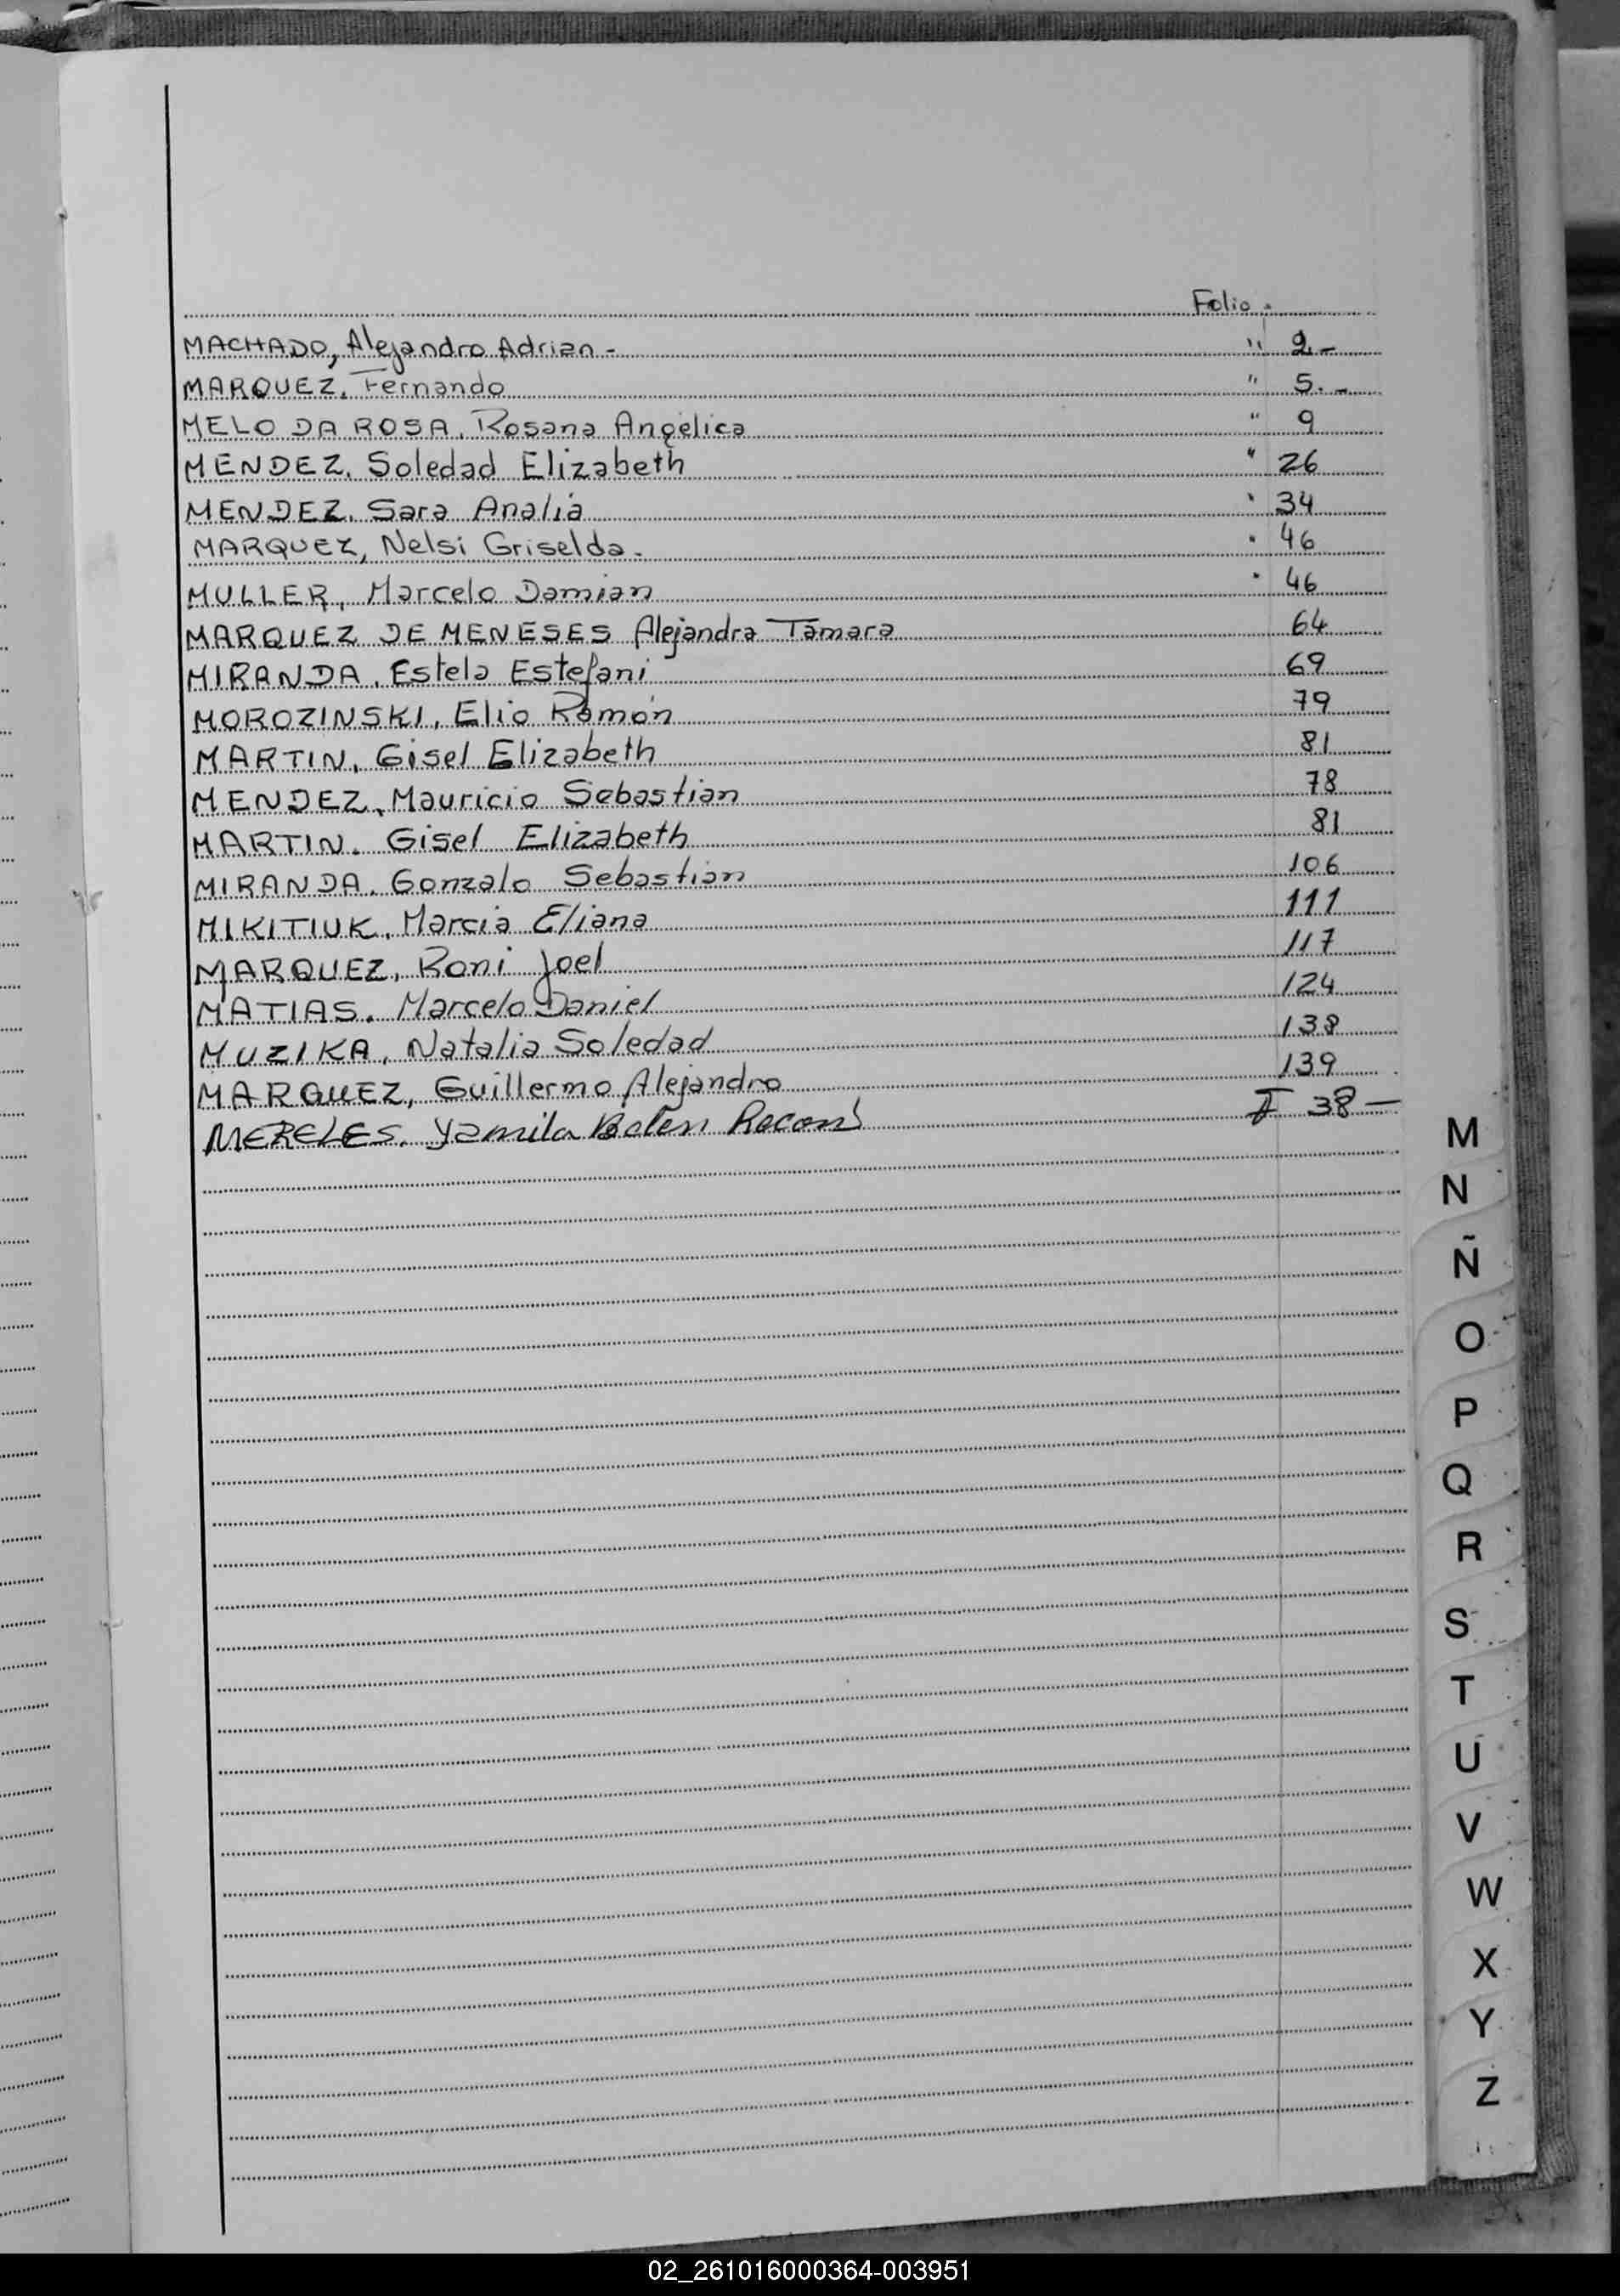 Folio.
MACHADO, Alejandro Adrian - " 2.-
MARQUEZ, Fernando " 5.-
MELO DA ROSA, Rosana Angelica " 9
MENDEZ, Soledad Elizabeth " 26
MENDEZ, Sara Analia " 34
MARQUEZ, Nelsi Griselda - " 46
MULLER, Marcelo Damian " 46
MARQUEZ DE MENESES Alejandra Tamara 64
MIRANDA, Estela Estefani 69
MOROZINSKI, Elio Ramón 79
MARTIN, Gisel Elizabeth 81
MENDEZ, Mauricio Sebastian 78
MARTIN, Gisel Elizabeth 81
MIRANDA, Gonzalo Sebastian 106
MIKITIUK, Marcia Eliana 111
MARQUEZ, Roni Joel 117
MATIAS, Marcelo Daniel 124
MUZIKA, Natalia Soledad 138
MARQUEZ, Guillermo Alejandro 139
MERELES, Yamila Belen I 38 -
M
N
Ñ
O
P
Q
R
S
T
U
V
W
X
Y
Z
02_261016000364-003951